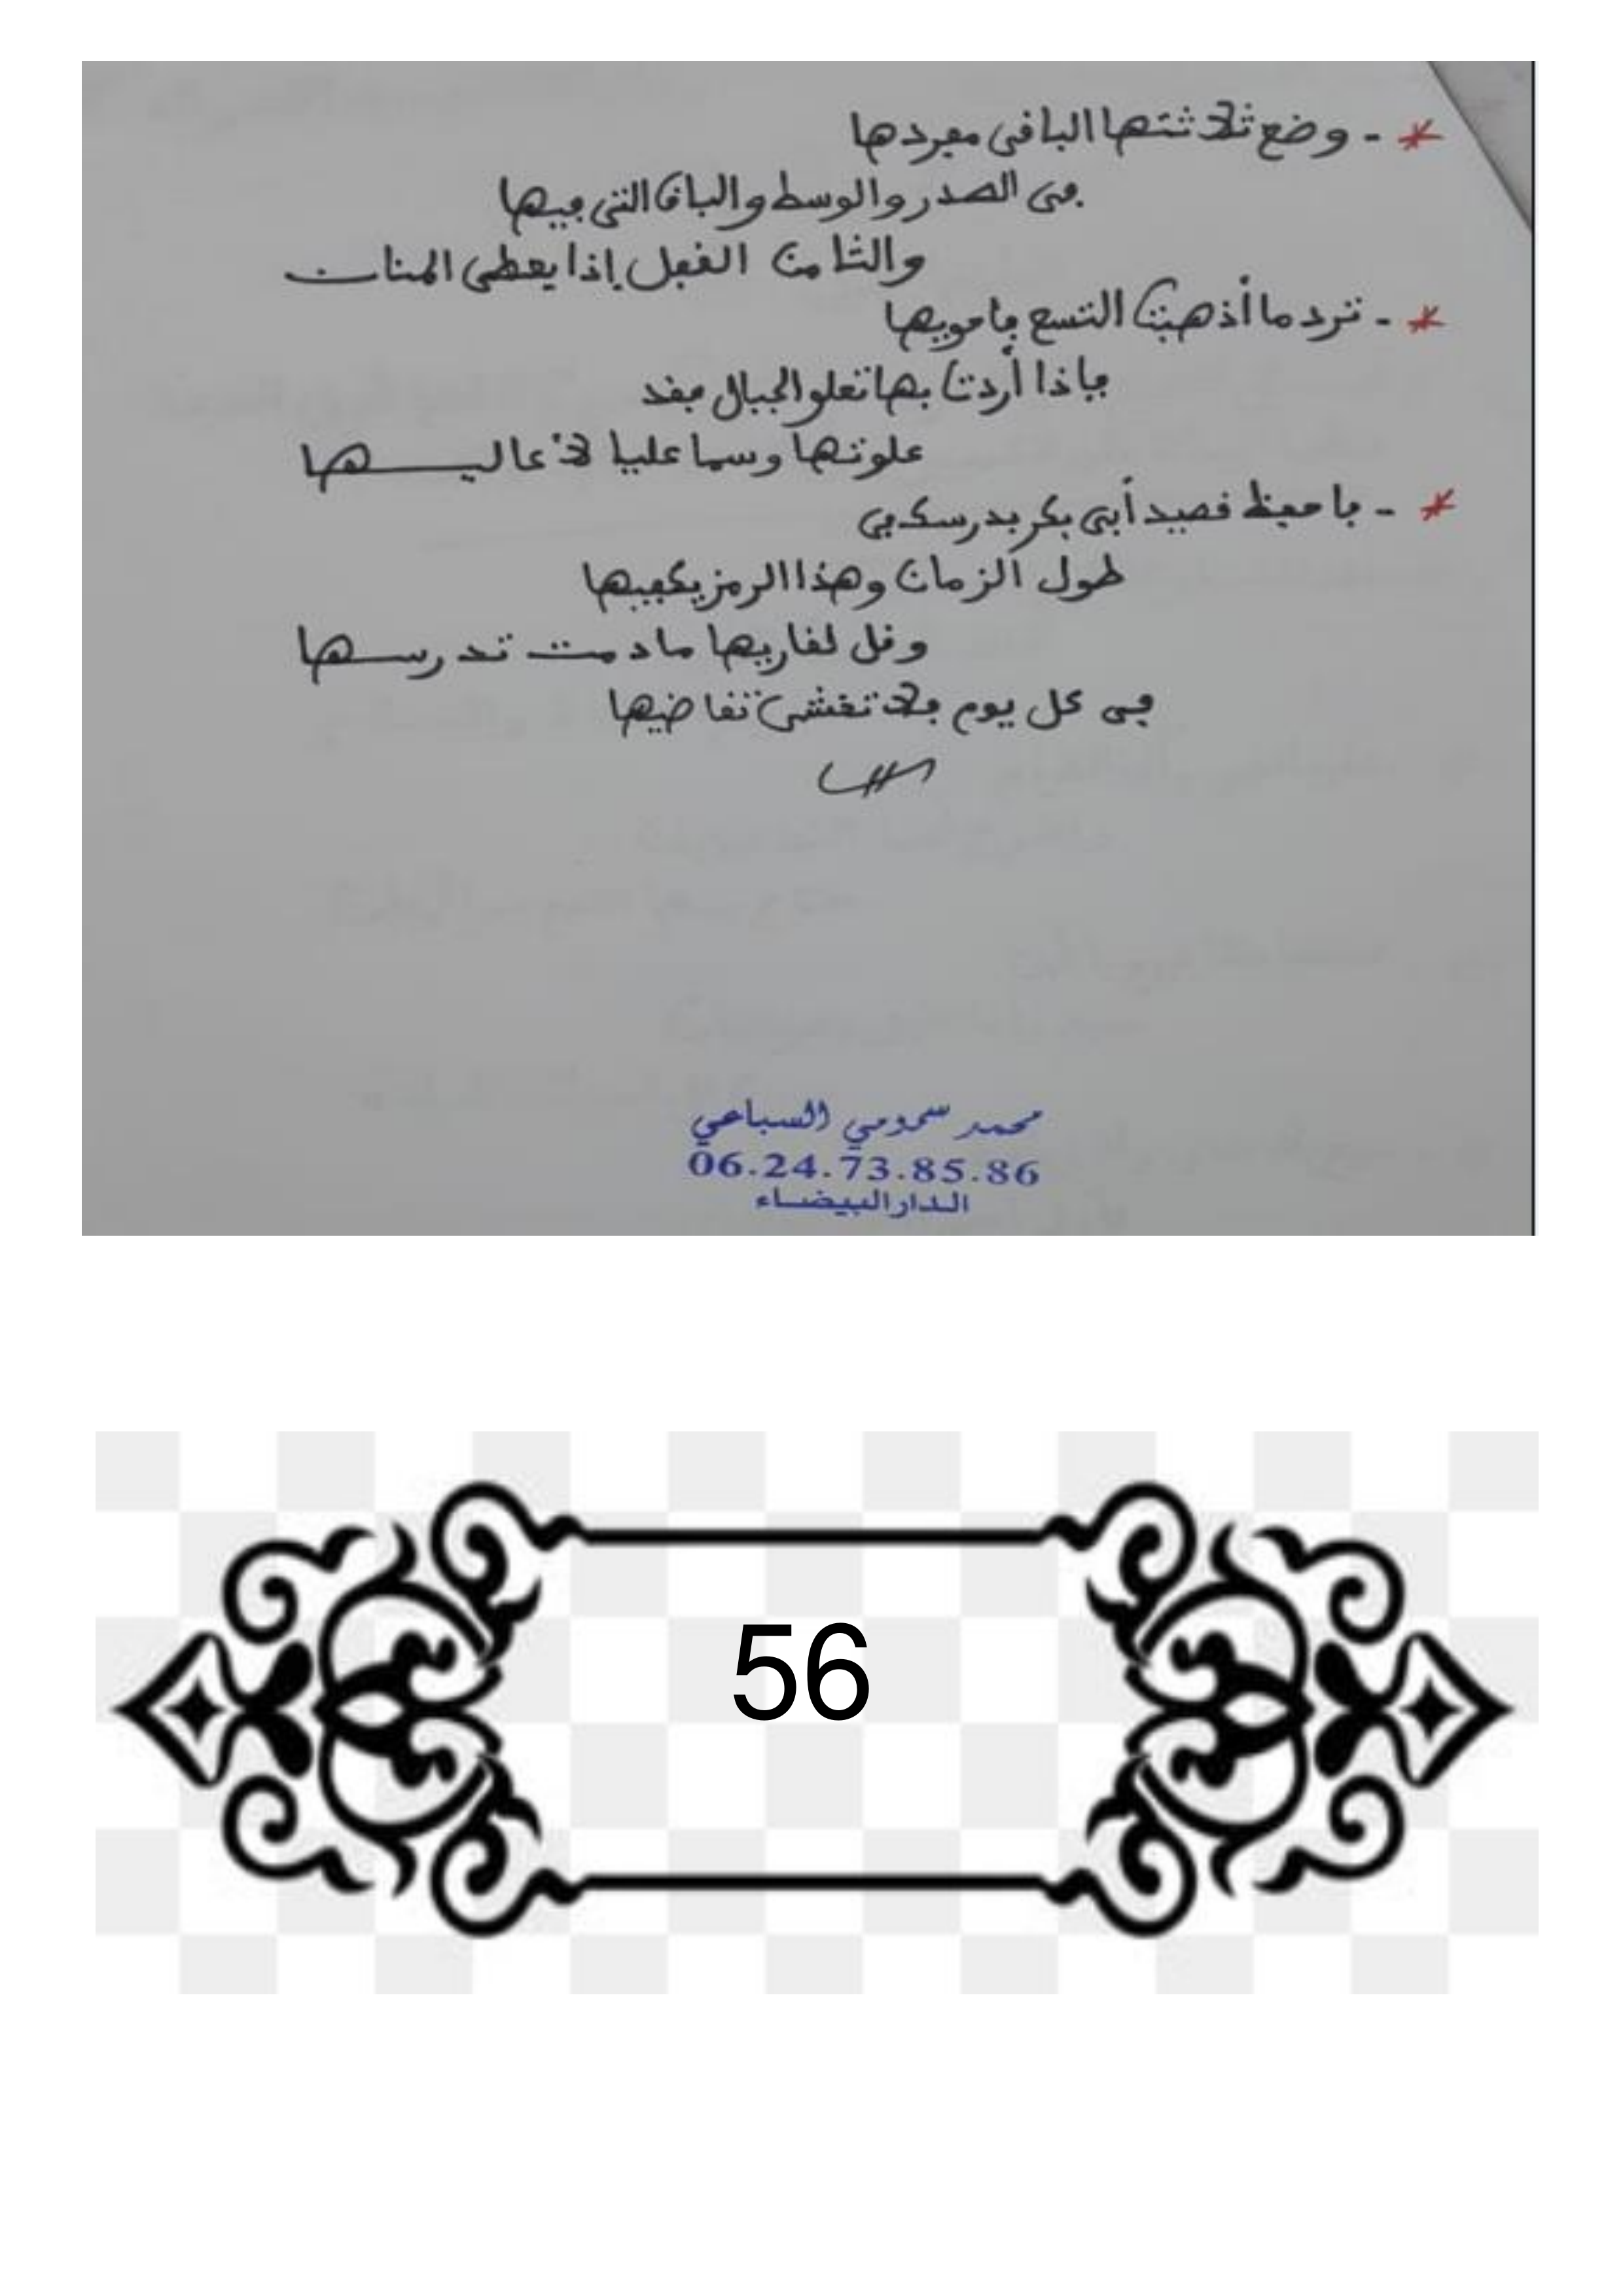 * - وضع ثلاثتها الباقي مفردها
في الصدر والوسط والباق التي فيها
والثامن القفل إذا يعطى المنات
* - ترد ما أذهبت التسع فاحويها
فإذا أردت بها تعلو الجبال فقد
علوتها وسما عليا لأعاليها
* - فاحفظ قصيد أبي بكر بدرسك في
طول الزمان وهذا الرمز يكفيها
وقل لقاريها مادمت تدرسها
في كل يوم فلا تغشى نقاضيها
محمد سمومي السباعي
06.24.73.85.86
الدار البيضاء
56